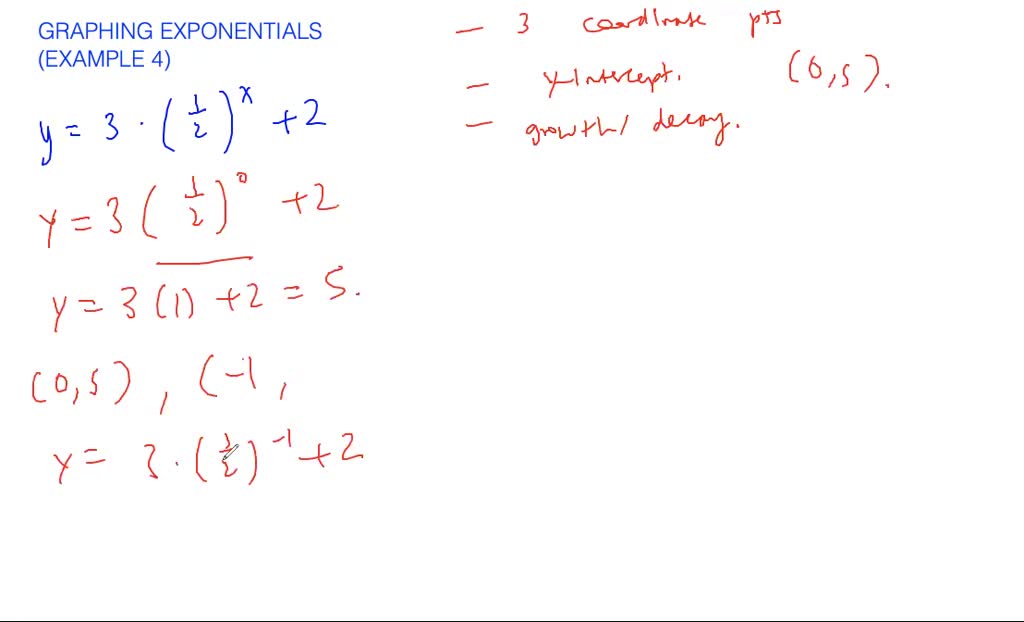 GRAPHING EXPONENTIALS
(EXAMPLE 4)
y = 3 · (1/2)^x + 2
y = 3 (1/2)^0 + 2
y = 3 (1) + 2 = 5.
(0,5) , (-1,
y = 3 · (1/2)^-1 + 2
— 3 coordinate pts
— y-intercept. (0,5).
— growth / decay.